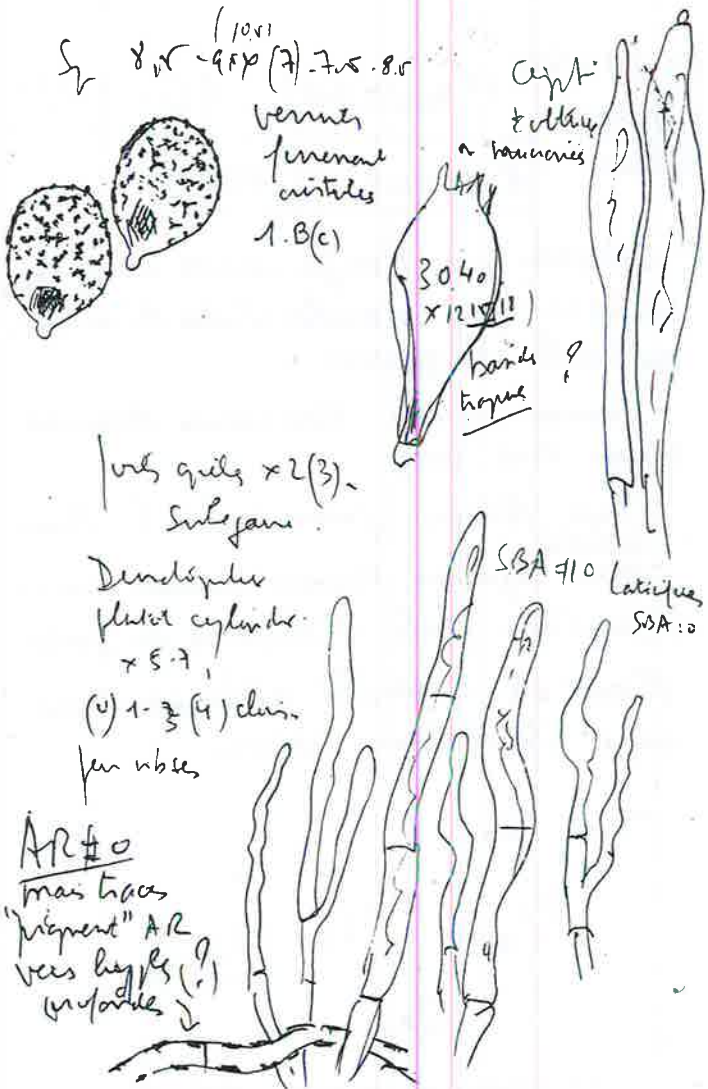 (10,5)
Sp 8,5 - 9,5 x (7) - 7,5 - 8,5
verrues
finement
cristulées
1. B(c)
Cyst.
30 40
x 12 15 (18)
basides
trapues ?
poils grêles x 2(3).
Subégaux.
plutôt cylindr.
x 5-7,
(0) 1-3 (4) clois.
peu
SBA ≠ 0
Laticifères
SBA : 0
AR ≠ 0
mais traces
"pigment" AR
vers hyphes (?)
profondes